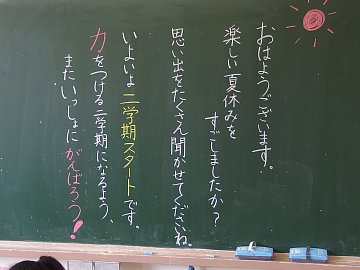 おはようございます。
楽しい夏休みを
すごしましたか?
思い出をたくさん聞かせてくださいね。
いよいよ二学期スタートです。
力をつける二学期になるよう、
また いっしょに がんばろう!